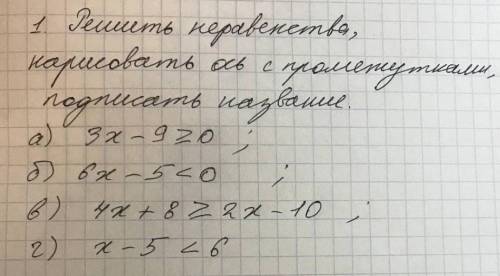 1. Решить неравенства,
нарисовать ось с промежутками,
подписать название.
а) 3x - 9 ≥ 0 ;
б) 6x - 5 < 0 ;
в) 4x + 8 ≥ 2x - 10 ;
г) x - 5 < 6